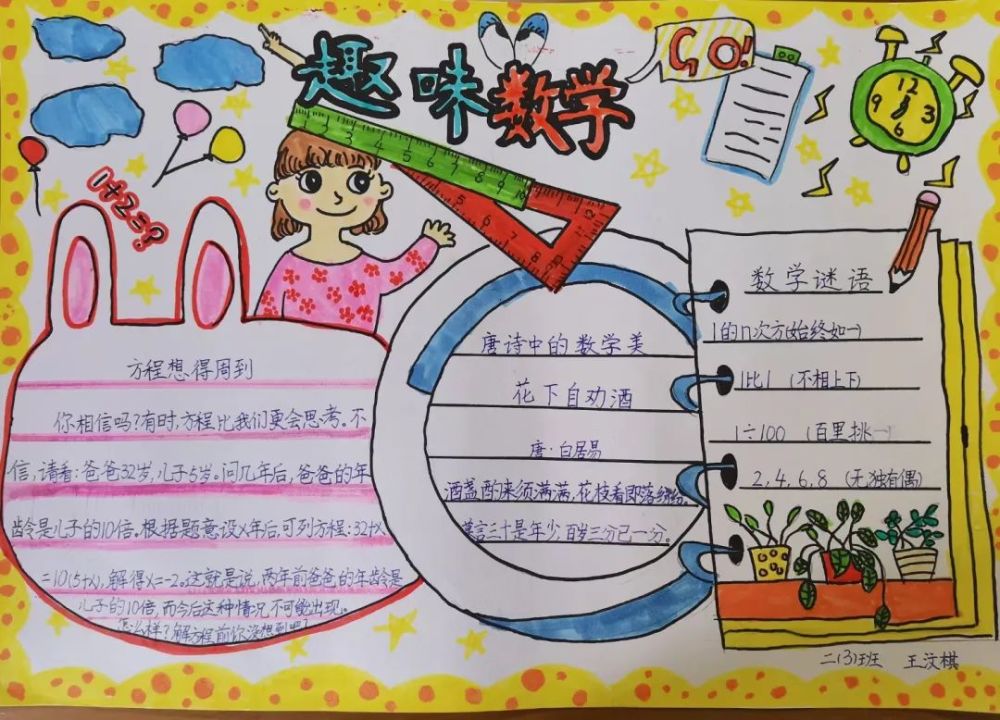 趣味数学
GO!
12
9 8 3
6
1+2=?
1 2 3 4 5 6 7 8 9 10
方程想得周到
你相信吗?有时,方程比我们更会思考。不
信,请看:爸爸32岁,儿子5岁。问几年后,爸爸的年
龄是儿子的10倍。根据题意设x年后,可列方程:32+x
=10(5+x),解得x=-2。这就是说,两年前爸爸的年龄是
儿子的10倍,而今后这种情况不可能出现。
怎么样?解方程前你没想到吧?
唐诗中的数学美
花下自劝酒
唐·白居易
酒盏酌来须满满,花枝看即落纷纷。
莫言三十是年少,百岁三分已一分。
数学谜语
1的n次方(始终如一)
1比1 (不相上下)
1÷100 (百里挑一)
2,4,6,8 (无独有偶)
二(3)班 王汶棋